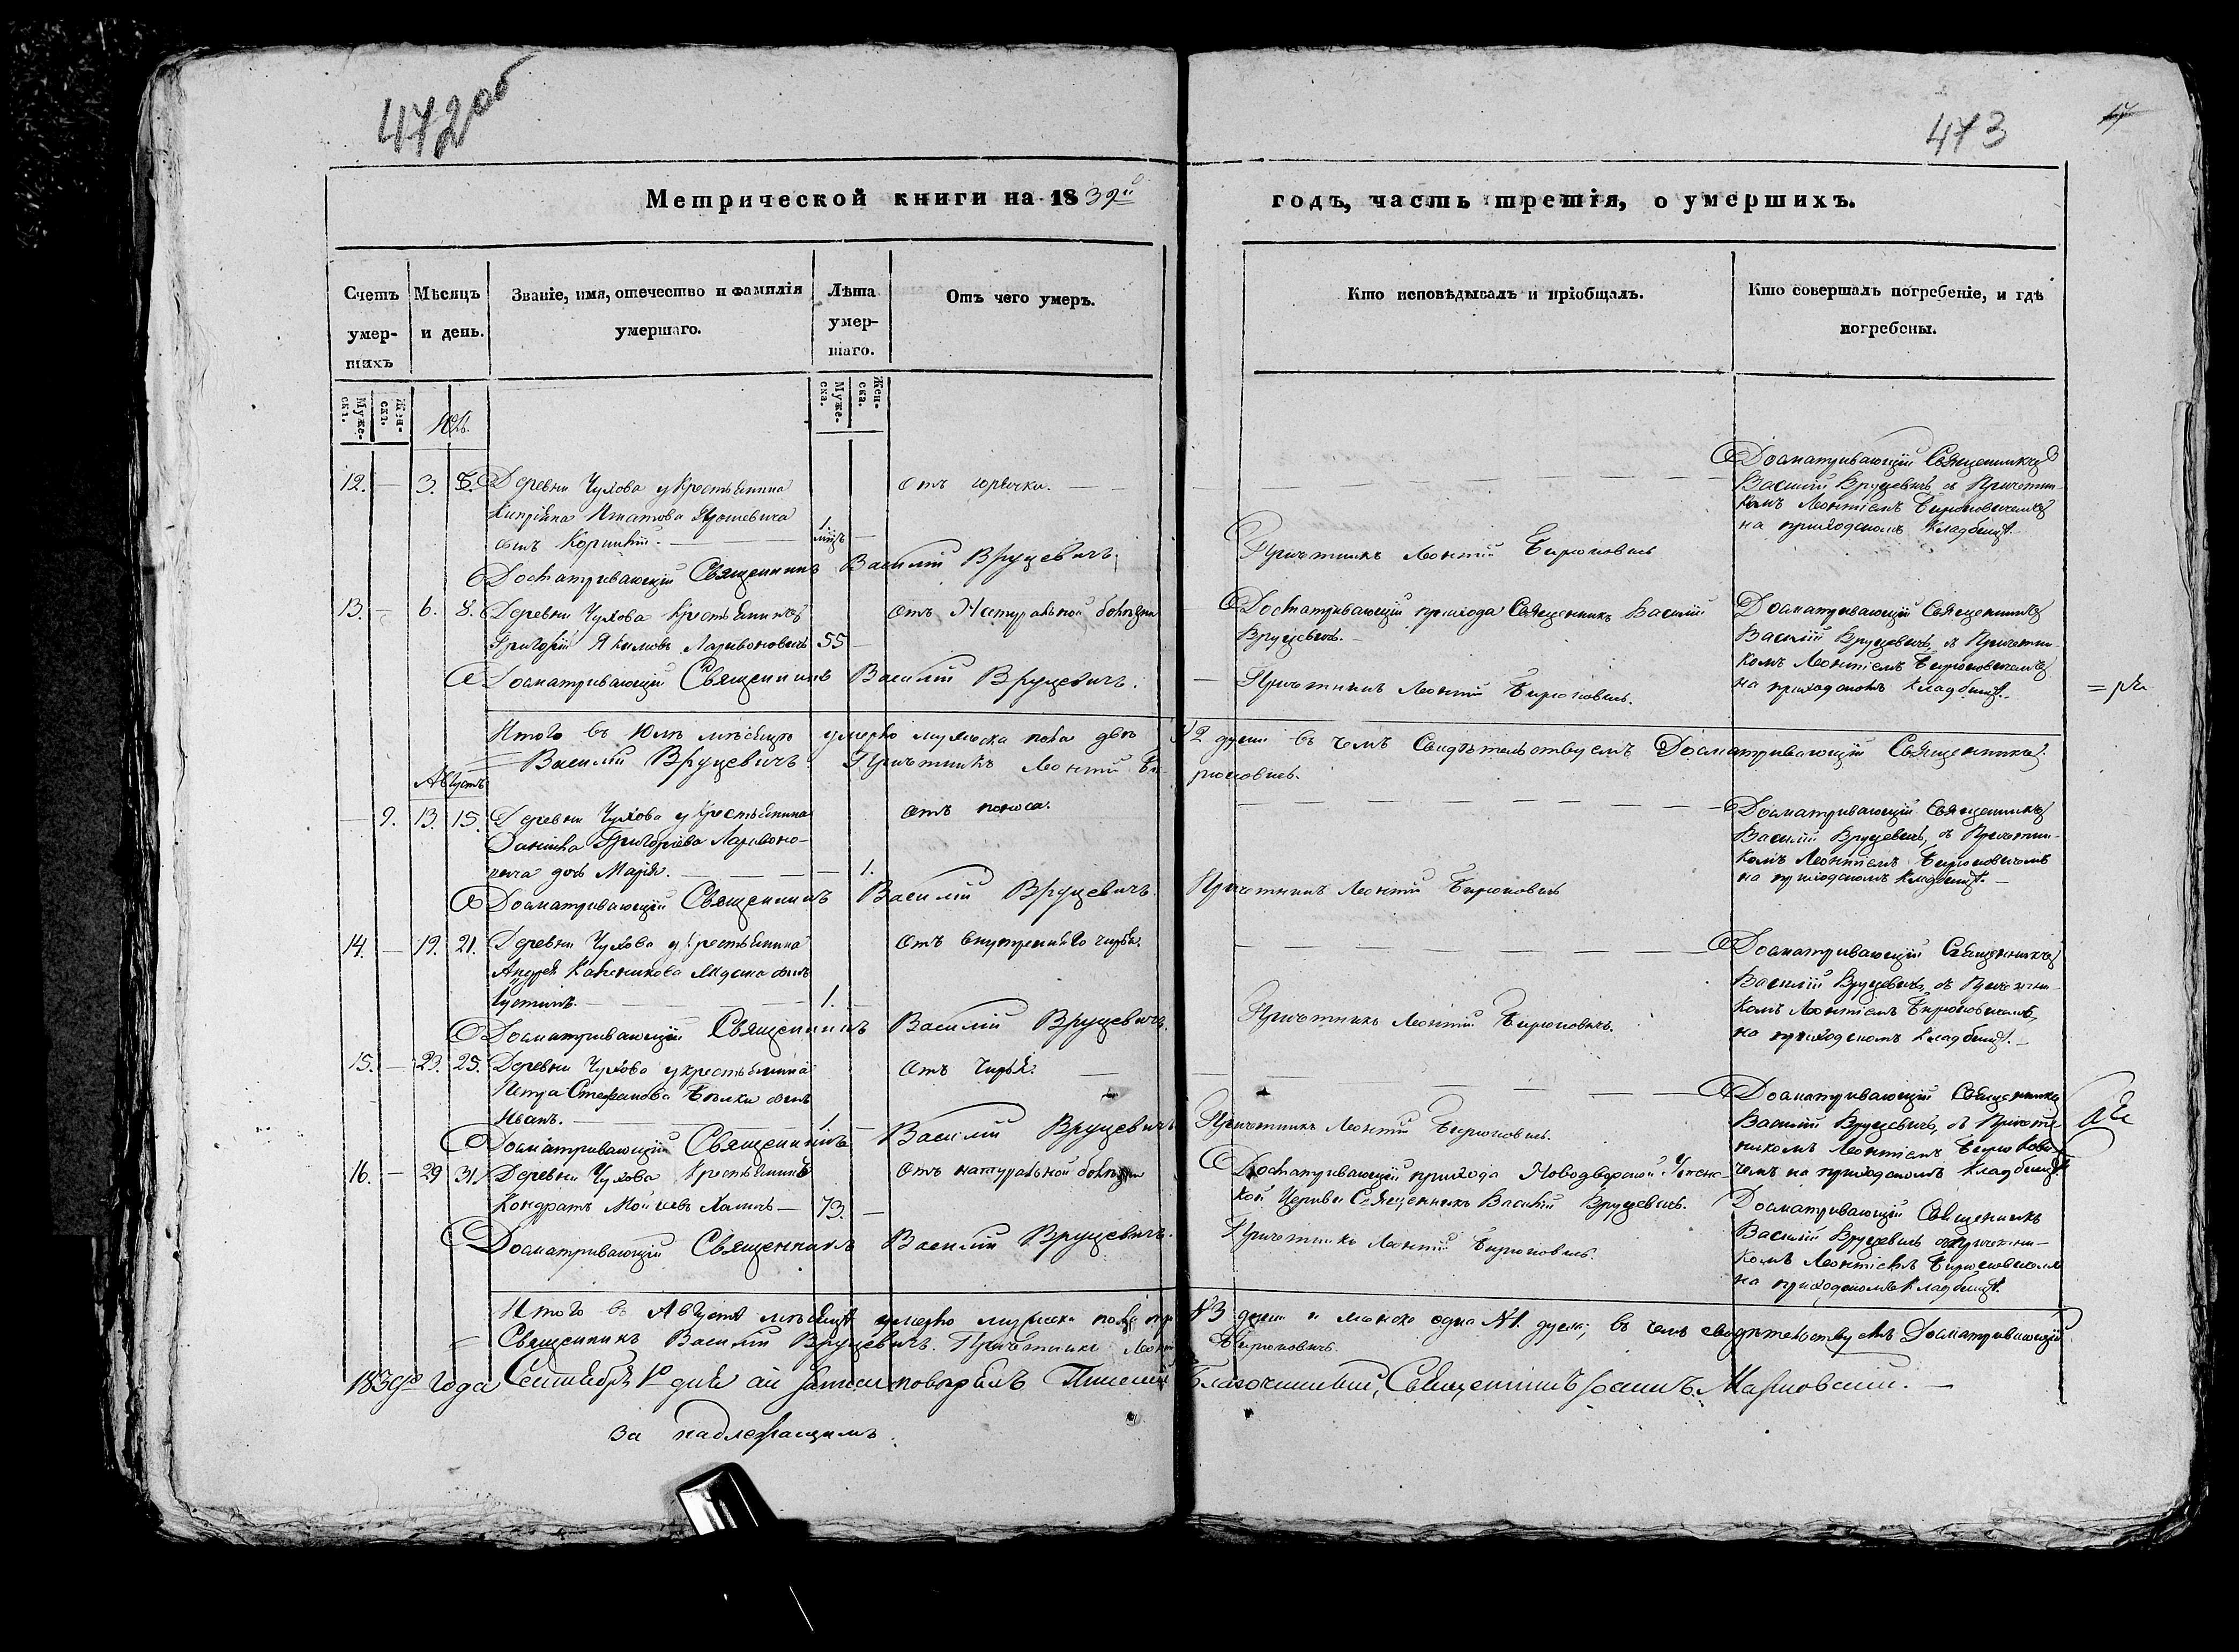 472об
473
17
Метрической книги на 1839й
годъ, часть третія, о умершихъ.
Счетъ умер-шихъ
Мѣсяцъ и день.
Званіе, имя, отечество и фамилія умершаго.
Лѣта умер-шаго.
Отъ чего умеръ.
Кто исповѣдывалъ и пріобщалъ.
Кто совершалъ погребеніе, и гдѣ погребены.
Муже-ска.
Жен-ска.
Муже-ска.
Жен-ска.
Юль
12. — 3. 5. Деревни Чухова у крестьянина
Кипріяна Игнатова Ярошевича
сынъ Корнилій. — 1. мѣсц
отъ горячки. —
Досматривающій Священникъ
Василій Вруцевичъ съ Причетни-
комъ Леонтіемъ Бирюковичемъ
на приходскомъ кладбищѣ.
Досматривающій Священникъ Василій Вруцевичъ.
Причетникъ Леонтій Бирюковичъ
13. — 6. 8. Деревни Чухова крестьянинъ
Григорій Якимовъ Ларивоновичъ 55 —
отъ Натуральной болѣзни
Досматривающій прихода Священникъ Василій
Вруцевичъ. —
Досматривающій Священникъ
Василій Вруцевичъ, съ Причетни-
комъ Леонтіемъ Бирюковичемъ
на приходскомъ кладбищѣ.
Досматривающій Священникъ Василій Вруцевичъ.
Причетникъ Леонтій Бирюковичъ.
Итого въ Юлѣ мѣсяцѣ умерло мужеска пола двѣ №2 души въ чемъ Свидѣтельствуемъ Досматривающій Священникъ
Василій Вруцевичъ. Причетникъ Леонтій Би-
рюковичъ.
Августъ
— 9. 13. 15. Деревни Чухова у крестьянина
Данійла Григоріева Ларивоно-
вича дочь Марія. — 1.
отъ поноса.
Досматривающій Священникъ
Василій Вруцевичъ, съ Причетни-
комъ Леонтіемъ Бирюковичемъ
на приходскомъ кладбищѣ. —
Досматривающій Священникъ Василій Вруцевичъ.
Причетникъ Леонтій Бирюковичъ
14. — 19. 21. Деревни Чухова у крестьянина
Андрея сынъ
Іустинъ. — 1. —
отъ внутренняго чирья.
Досматривающій Священникъ
Василій Вруцевичъ, съ Причетни-
комъ Леонтіемъ Бирюковичемъ,
на приходскомъ кладбищѣ. —
Досматривающій Священникъ Василій Вруцевичъ.
Причетникъ Леонтій Бирюковичъ.
15. — 23. 25. Деревни Чухова у крестьянина
Петра Стефанова сынъ
Иванъ. — 1. —
отъ чирья. —
Досматривающій Священникъ
Василій Вруцевичъ, съ Причет-
никомъ Леонтіемъ Бирюкови-
чемъ на приходскомъ кладбищѣ
Досматривающій Священникъ Василій Вруцевичъ
Причетникъ Леонтій Бирюковичъ.
16. — 29 31. Деревни Чухова крестьянинъ
Кондратъ Моисеевъ — 73. —
отъ натуральной болѣзни
Досматривающій прихода Новодворской Успенс-
кой Церкви Священникъ Василій Вруцевичъ.
Досматривающій Священникъ
Василій Вруцевичъ съ Причетни-
комъ Леонтіемъ Бирюковичемъ
на приходскомъ кладбищѣ.
Досматривающій Священникъ Василій Вруцевичъ.
Причетникъ Леонтій Бирюковичъ.
Итого въ Августѣ мѣсяцѣ умерло мужеска пола три №3 души и женска одна №1. душа; въ чемъ свидѣтельствуемъ Досматривающій
Священникъ Василій Вруцевичъ. Причетникъ Леонтій
Бирюковичъ.
1839го года Сентября 1о дня записи повѣрялъ Благочинный, Священникъ Іоаннъ Марковскій. —
за надлежащимъ.